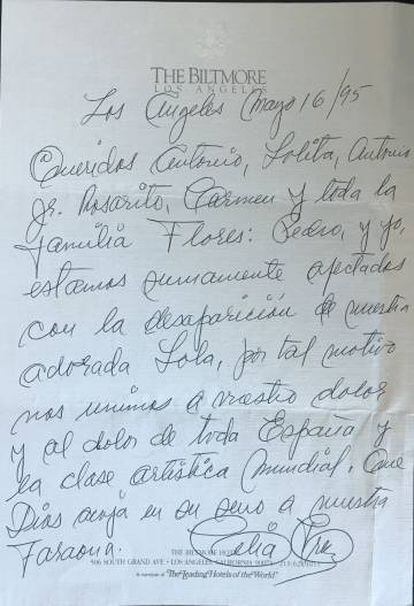 THE BILTMORE
LOS ANGELES
Los Angeles Mayo 16/95
Queridos Antonio, Lolita, Antonio
Jr. Rosarito, Carmen y toda la
familia Flores: Pedro, y yo,
estamos sumamente afectados
con la desaparición de nuestra
adorada Lola, por tal motivo
nos unimos a vuestro dolor
y al dolor de toda España y
la clase artística mundial. Que
Dios acoja en su seno a nuestra
Faraona. Celia Cruz
THE BILTMORE HOTEL
506 SOUTH GRAND AVE • LOS ANGELES, CALIFORNIA 90071
"The Leading Hotels of the World"